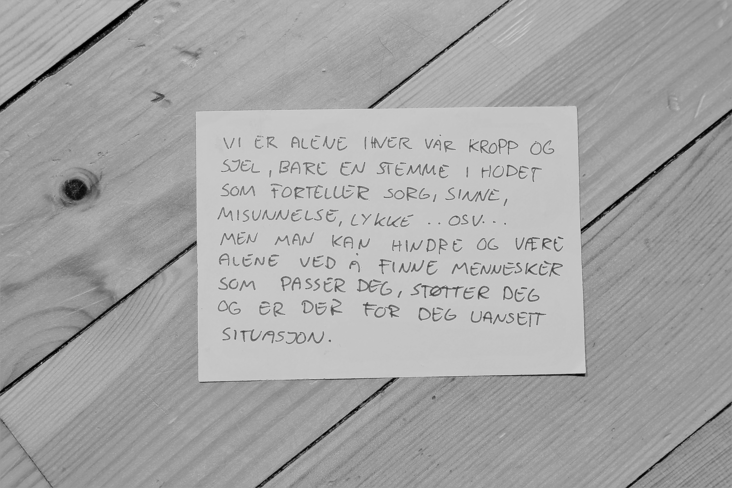 VI ER ALENE I HVER VÅR KROPP OG
SJEL, BARE EN STEMME I HODET
SOM FORTELLER SORG, SINNE,
MISUNNELSE, LYKKE .. OSV...
MEN MAN KAN HINDRE OG VÆRE
ALENE VED Å FINNE MENNESKER
SOM PASSER DEG, STØTTER DEG
OG ER DER FOR DEG UANSETT
SITUASJON.